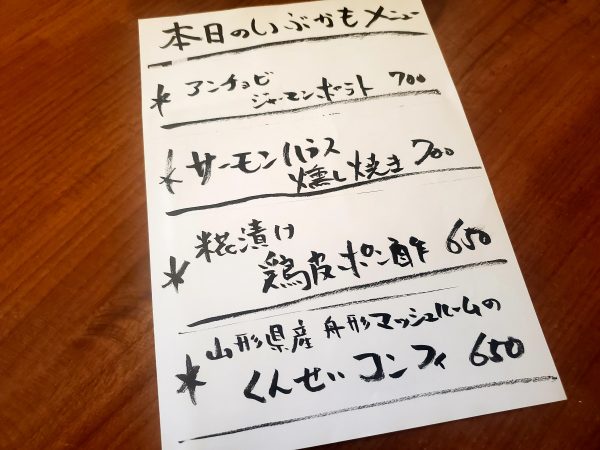 本日のいぶかもメニュー
アンチョビ
ジャーマンポテト 700
サーモンハラス
燻し焼き 700
糀漬け
鶏皮ポン酢 650
山形県産 舟形マッシュルームの
くんせいコンフィ 650